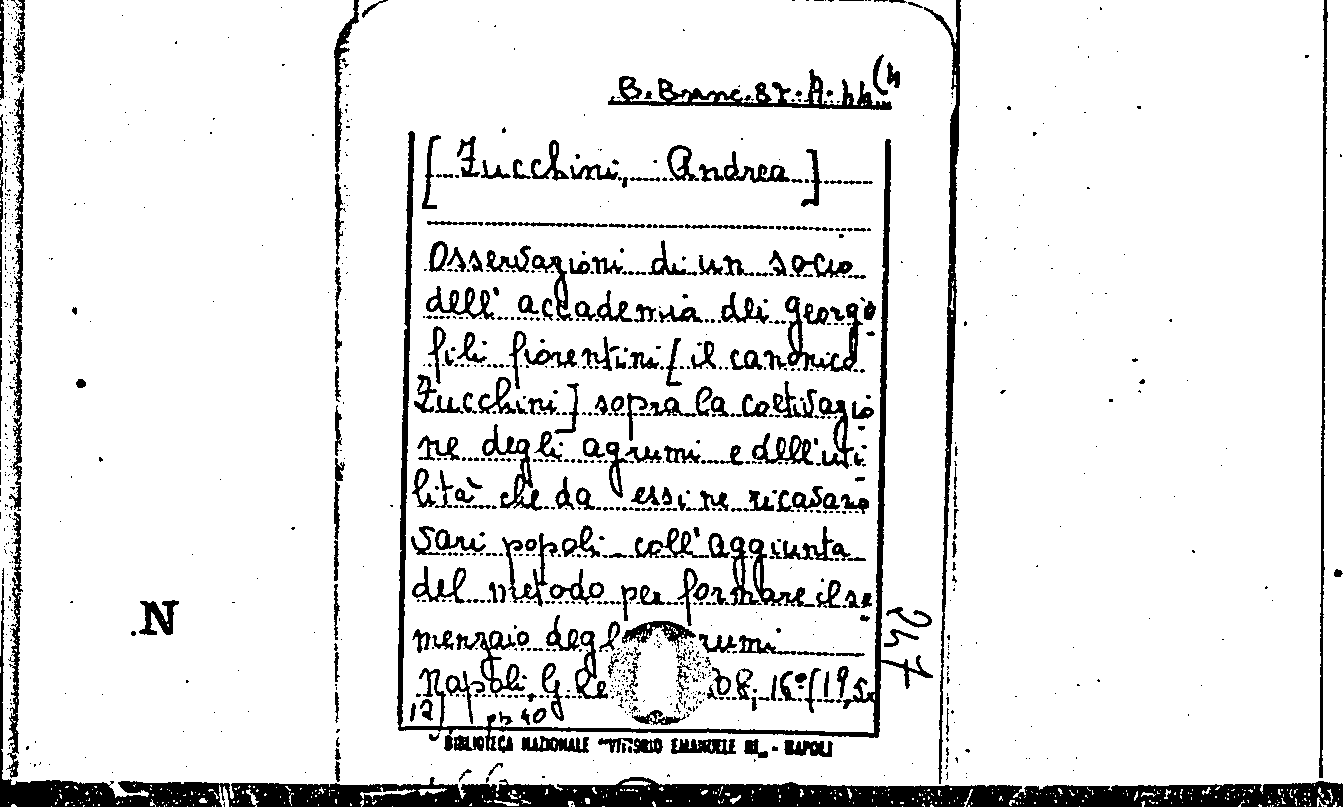 B. Branc. 87. A. 44 (4
[Zucchini, Andrea]
Osservazioni di un socio
dell' accademia dei georgo
fili fiorentini [il canonico
Zucchini] sopra la coltivazio
ne degli agrumi e dell'uti
lità che da essi ne ricavano
vari popoli coll'aggiunta
del metodo per formare il se
menzaio degl rumi
Napoli, G. Re 08, 16° (19,5x
12) pp 40
BIBLIOTECA NAZIONALE "VITTORIO EMANUELE III„ - NAPOLI
247
N